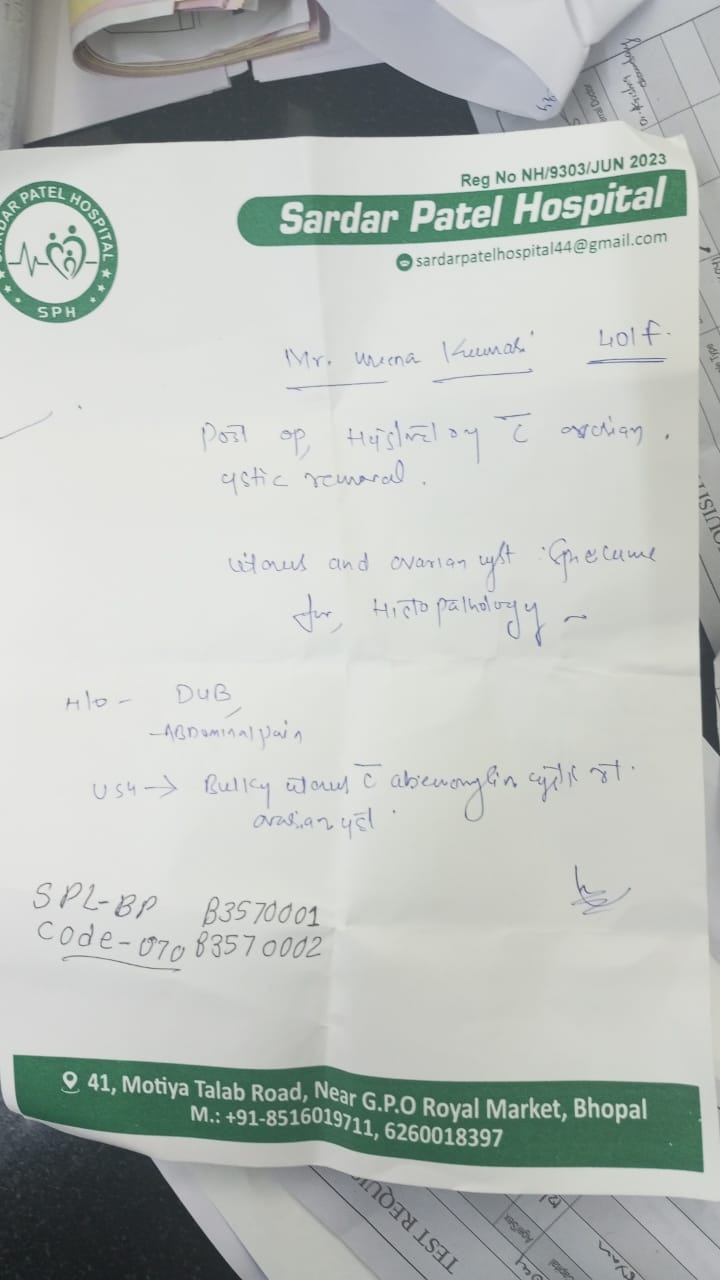 Reg No NH/9303/JUN 2023
Sardar Patel Hospital
sardarpatelhospital44@gmail.com
DAR PATEL HOSPITAL
SPH
Mr. Meena Kumari 40/F.
Post op, c̅ ovarian
cystic removal.
uterus and ovarian cyst
for, Histopathology
H/O - DUB
- ABDominal pain
USG → Bulky uterus c̅ rt.
ovarian cyst.
SPL-BP B3570001
Code-070 B3570002
41, Motiya Talab Road, Near G.P.O Royal Market, Bhopal
M.: +91-8516019711, 6260018397
TEST REQUI
Age/Sex